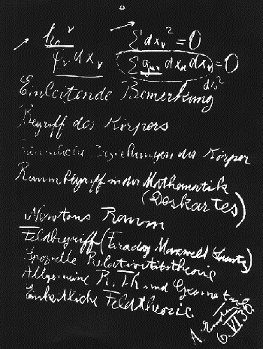 Σ dxᵥ² = 0
Σ gμν dxμ dxν = 0
ds²
Einleitende Bemerkung
Begriff des Körpers
Beziehungen der Körper
Raumbegriff in der Mathematik
(Deskartes)
Newtons Raum
Feldbegriff (Faraday Maxwell Lorentz)
Spezielle Relativitätstheorie
Allgemeine R. Th. und Geometrie
Einheitliche Feldtheorie